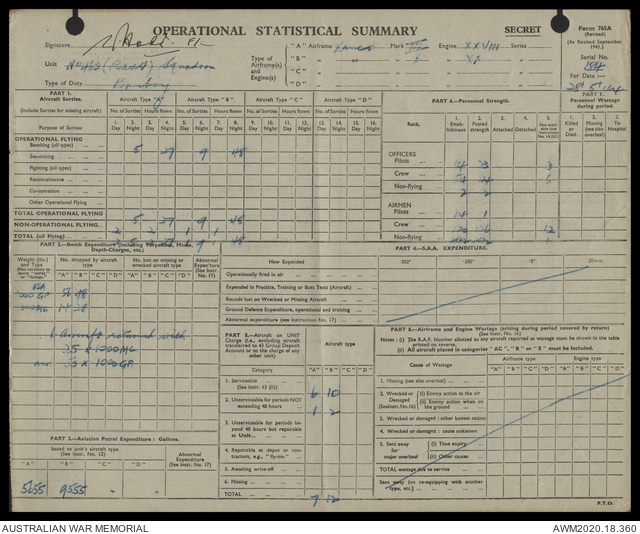 OPERATIONAL STATISTICAL SUMMARY
SECRET
Form 765A
(Revised)
(As Revised September 1941.)
Signature
"A" Airframe Mark Engine XXVIII Series
Serial No.
Unit Squadron
Type of Airframe(s) and Engine(s)
"B"
"C"
"D"
For Date:—
Type of Duty Bombing
PART 1.
Aircraft Sorties.
(Include Sorties for missing aircraft)
Aircraft Type "A" Aircraft Type "B" Aircraft Type "C" Aircraft Type "D"
No. of Sorties Hours flown No. of Sorties Hours flown No. of Sorties Hours flown No. of Sorties Hours flown
Purpose of Sorties
1. Day 2. Night 3. Day 4. Night 5. Day 6. Night 7. Day 8. Night 9. Day 10. Night 11. Day 12. Night 13. Day 14. Night 15. Day 16. Night
OPERATIONAL FLYING
Bombing (all types) 5 27 9 48
Sea-mining
Fighting (all types)
Reconnaissance
Co-operation
Other Operational Flying
TOTAL OPERATIONAL FLYING 5 27 9 48
NON-OPERATIONAL FLYING 2 2 1 1
TOTAL (all Flying)
PART 6.—Personnel Strength.
PART 7.
Personnel Wastage during period.
Rank.
1. Establishment
2. Posted strength
3. Attached
4. Detached
1. Killed or Died.
2. Missing (see also overleaf)
3. To Hospital
OFFICERS
Pilots
Crew
Non-flying 2 2
AIRMEN
Pilots 14 1
Crew
Non-flying
PART 2.—Bomb Expenditure (including Torpedoes, Mines, Depth-Charges, etc.)
Weight (lbs.) and Type
No. dropped by aircraft type
No. lost on missing or wrecked aircraft type
Abnormal Expen'ture (See Instr. No. 17)
"A" "B" "C" "D" "A" "B" "C" "D"
6 Aircraft returned with
25 x 1000 MC
33 x 1000 GP
PART 4.—S.A.A. EXPENDITURE.
How Expended
·303" ·300" ·5" 20mm.
Operationally fired in air
Expended in Practice, Training or Butt Tests (Aircraft)
Rounds lost on Wrecked or Missing Aircraft
Ground Defence Expenditure, operational and training
Abnormal expenditure (see instruction No. 17)
PART 5.—Aircraft on UNIT Charge (i.e., excluding aircraft transferred to 43 Group Deposit Account or to the charge of any other unit)
Aircraft type
Category "A" "B" "C" "D"
1. Serviceable (See Instr. 13 (ii)) 6 10
2. Unserviceable for periods NOT exceeding 48 hours 1 2
3. Unserviceable for periods beyond 48 hours but repairable at Unit
4. Repairable at depot or contractors, e.g., "fly-in"
5. Awaiting write-off
6. Missing
TOTAL 7 12
PART 8.—Airframe and Engine Wastage (arising during period covered by return)
(See Instr. No. 16)
Notes: (i) The R.A.F. Number allotted to any aircraft reported as wastage must be shown in the table printed on reverse.
(ii) All aircraft placed in categories "AC," "B" or "E" must be included.
Cause of Wastage
Airframe type Engine type
"A" "B" "C" "D" "A" "B" "C" "D"
1. Missing (see also overleaf)
2. Wrecked or Damaged (See Instr. No. 16)
(i) Enemy action in the air
(ii) Enemy action when on the ground
3. Wrecked or damaged: other known causes
4. Wrecked or damaged: cause unknown
5. Sent away for major overhaul
(i) Time expiry
(ii) Other causes
TOTAL wastage due to service
Sent away (on re-equipping with another type, etc.)
PART 3.—Aviation Petrol Expenditure: Gallons.
Issued to unit's aircraft type (See Instr. No. 12)
Abnormal Expenditure (See Instr. No. 17)
"A" "B" "C" "D"
5655 9555
P.T.O.
AUSTRALIAN WAR MEMORIAL
AWM2020.18.360